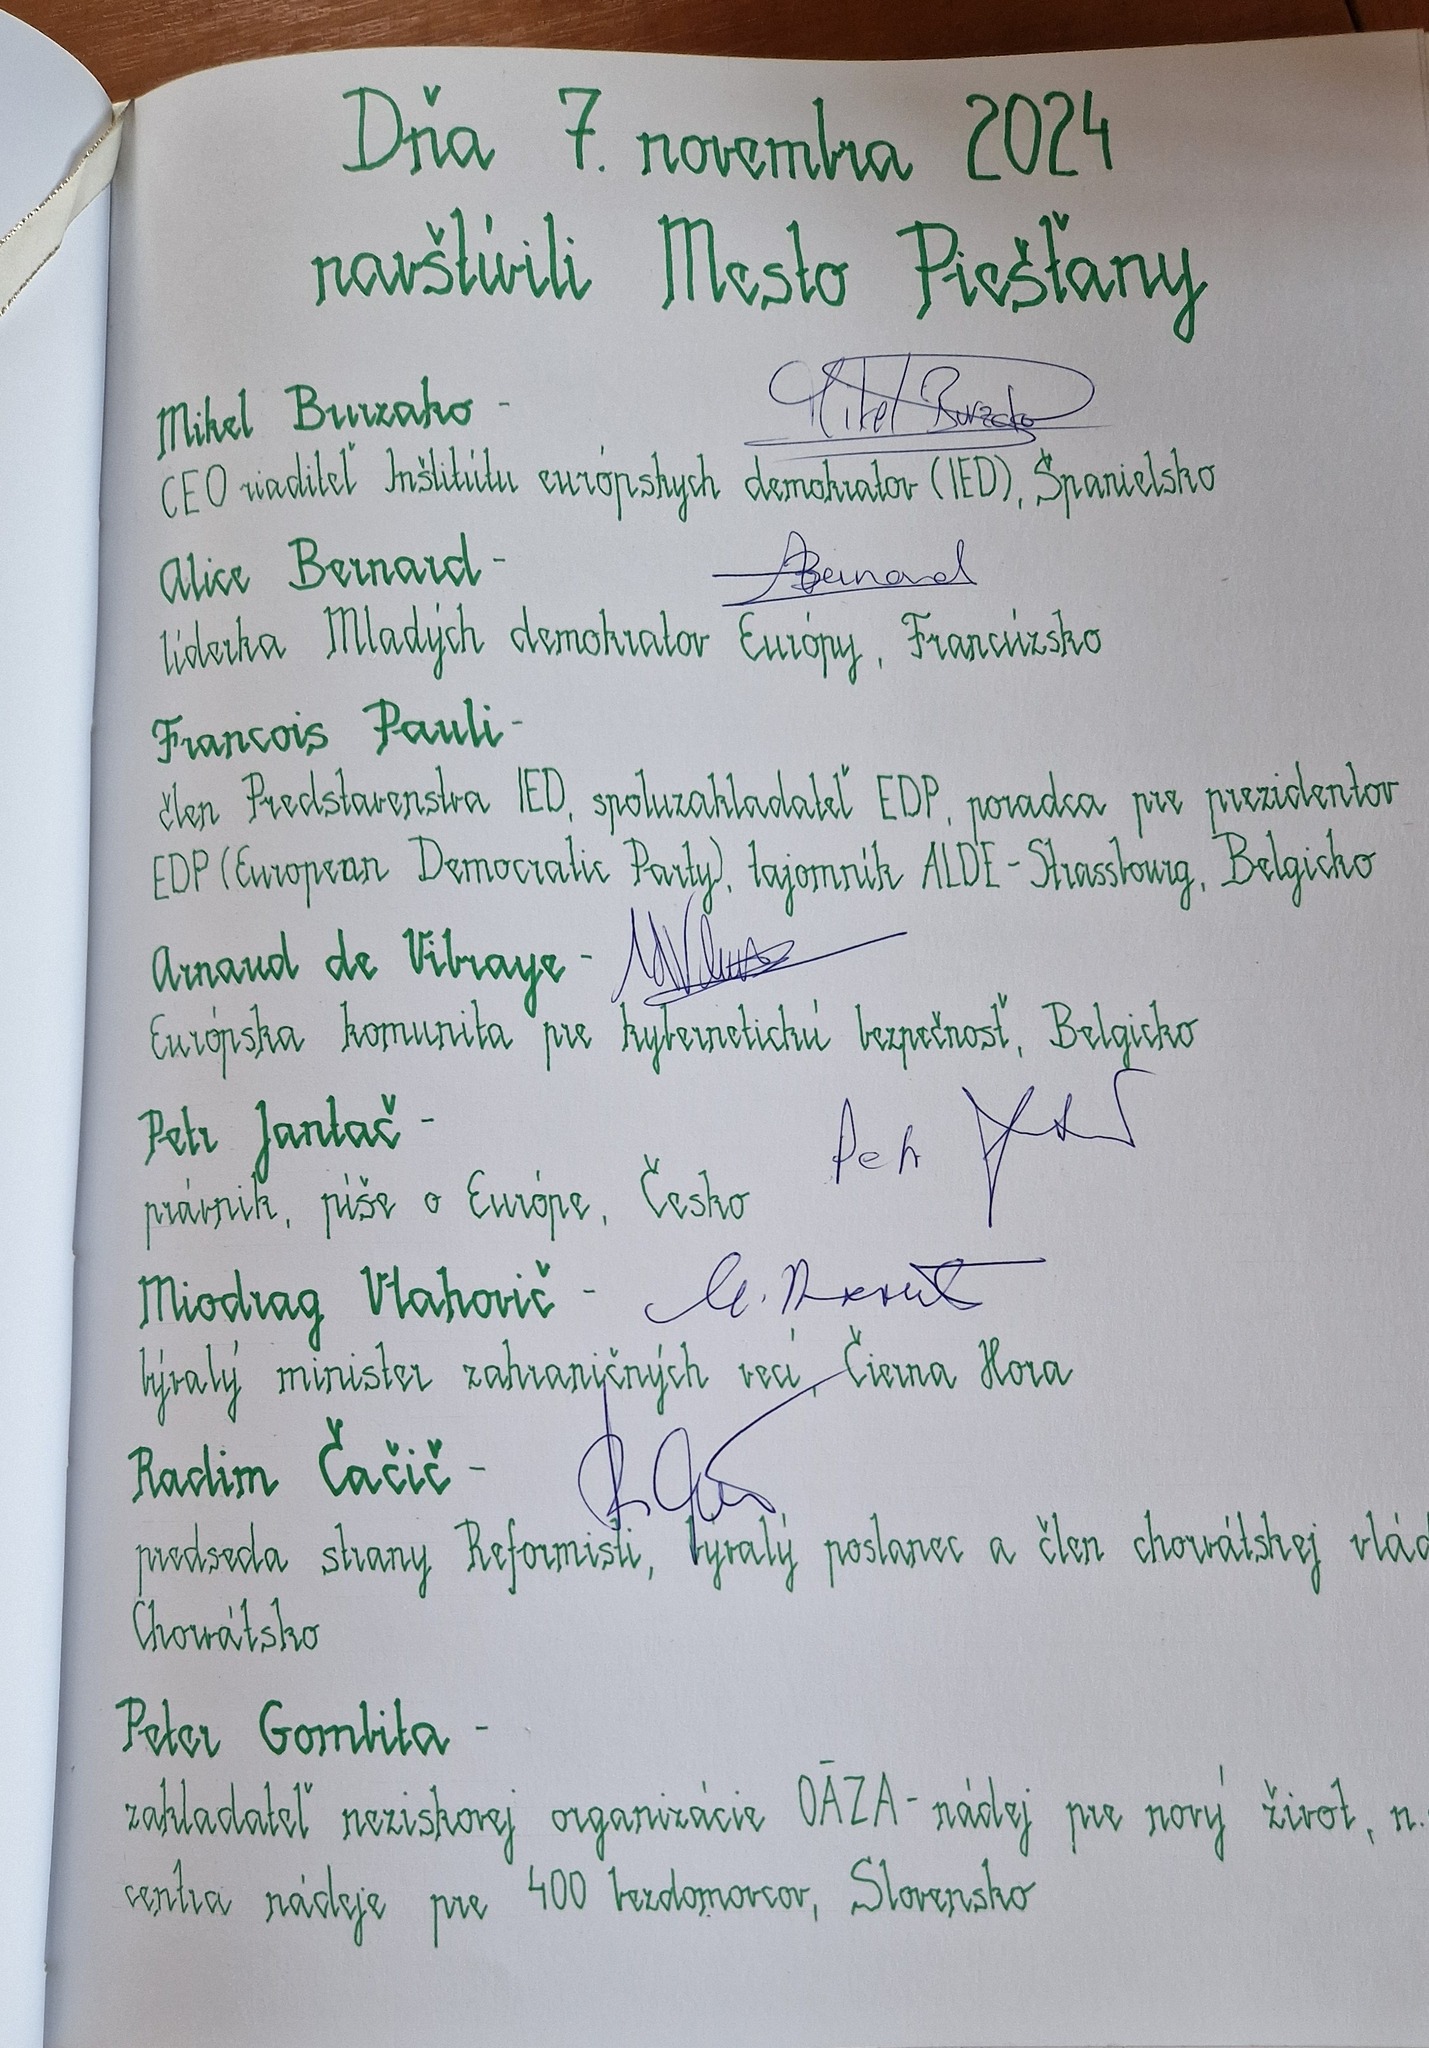 Dňa 7. novembra 2024
navštívili Mesto Piešťany
Mikel Burzako -
Mikel Burzako
CEO riaditeľ Inštitútu európskych demokratov (IED), Španielsko
Alice Bernard -
ABernard
líderka Mladých demokratov Európy, Francúzsko
Francois Pauli -
člen Predstavenstva IED, spoluzakladateľ EDP, poradca pre prezidentov
EDP (European Democratic Party), tajomník ALDE - Strassbourg, Belgicko
Arnaud de Vibraye -
Európska komunita pre kybernetickú bezpečnosť, Belgicko
Petr Jantač -
Petr
právnik, píše o Európe, Česko
Miodrag Vlahovič -
bývalý minister zahraničných vecí, Čierna Hora
Radim Čačič -
predseda strany Reformisti, bývalý poslanec a člen chorvátskej vlád
Chorvátsko
Peter Gombita -
zakladateľ neziskovej organizácie OÁZA - nádej pre nový život, n.
centra nádeje pre 400 bezdomovcov, Slovensko